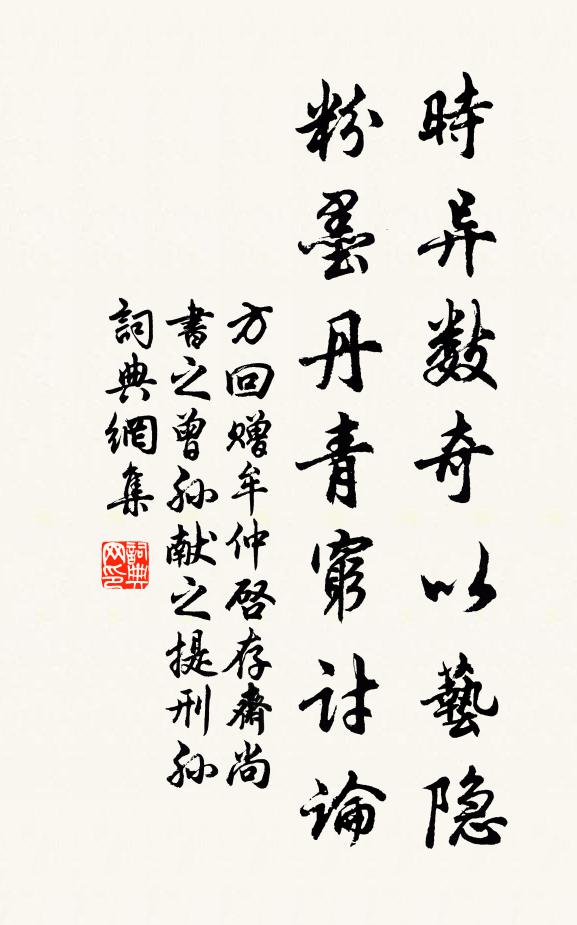 時异数奇以藝隐
粉墨丹青窮討論
方回赠牟仲啓存齋尚
書之曾孙献之提刑孙
詞典網集
詞典网印